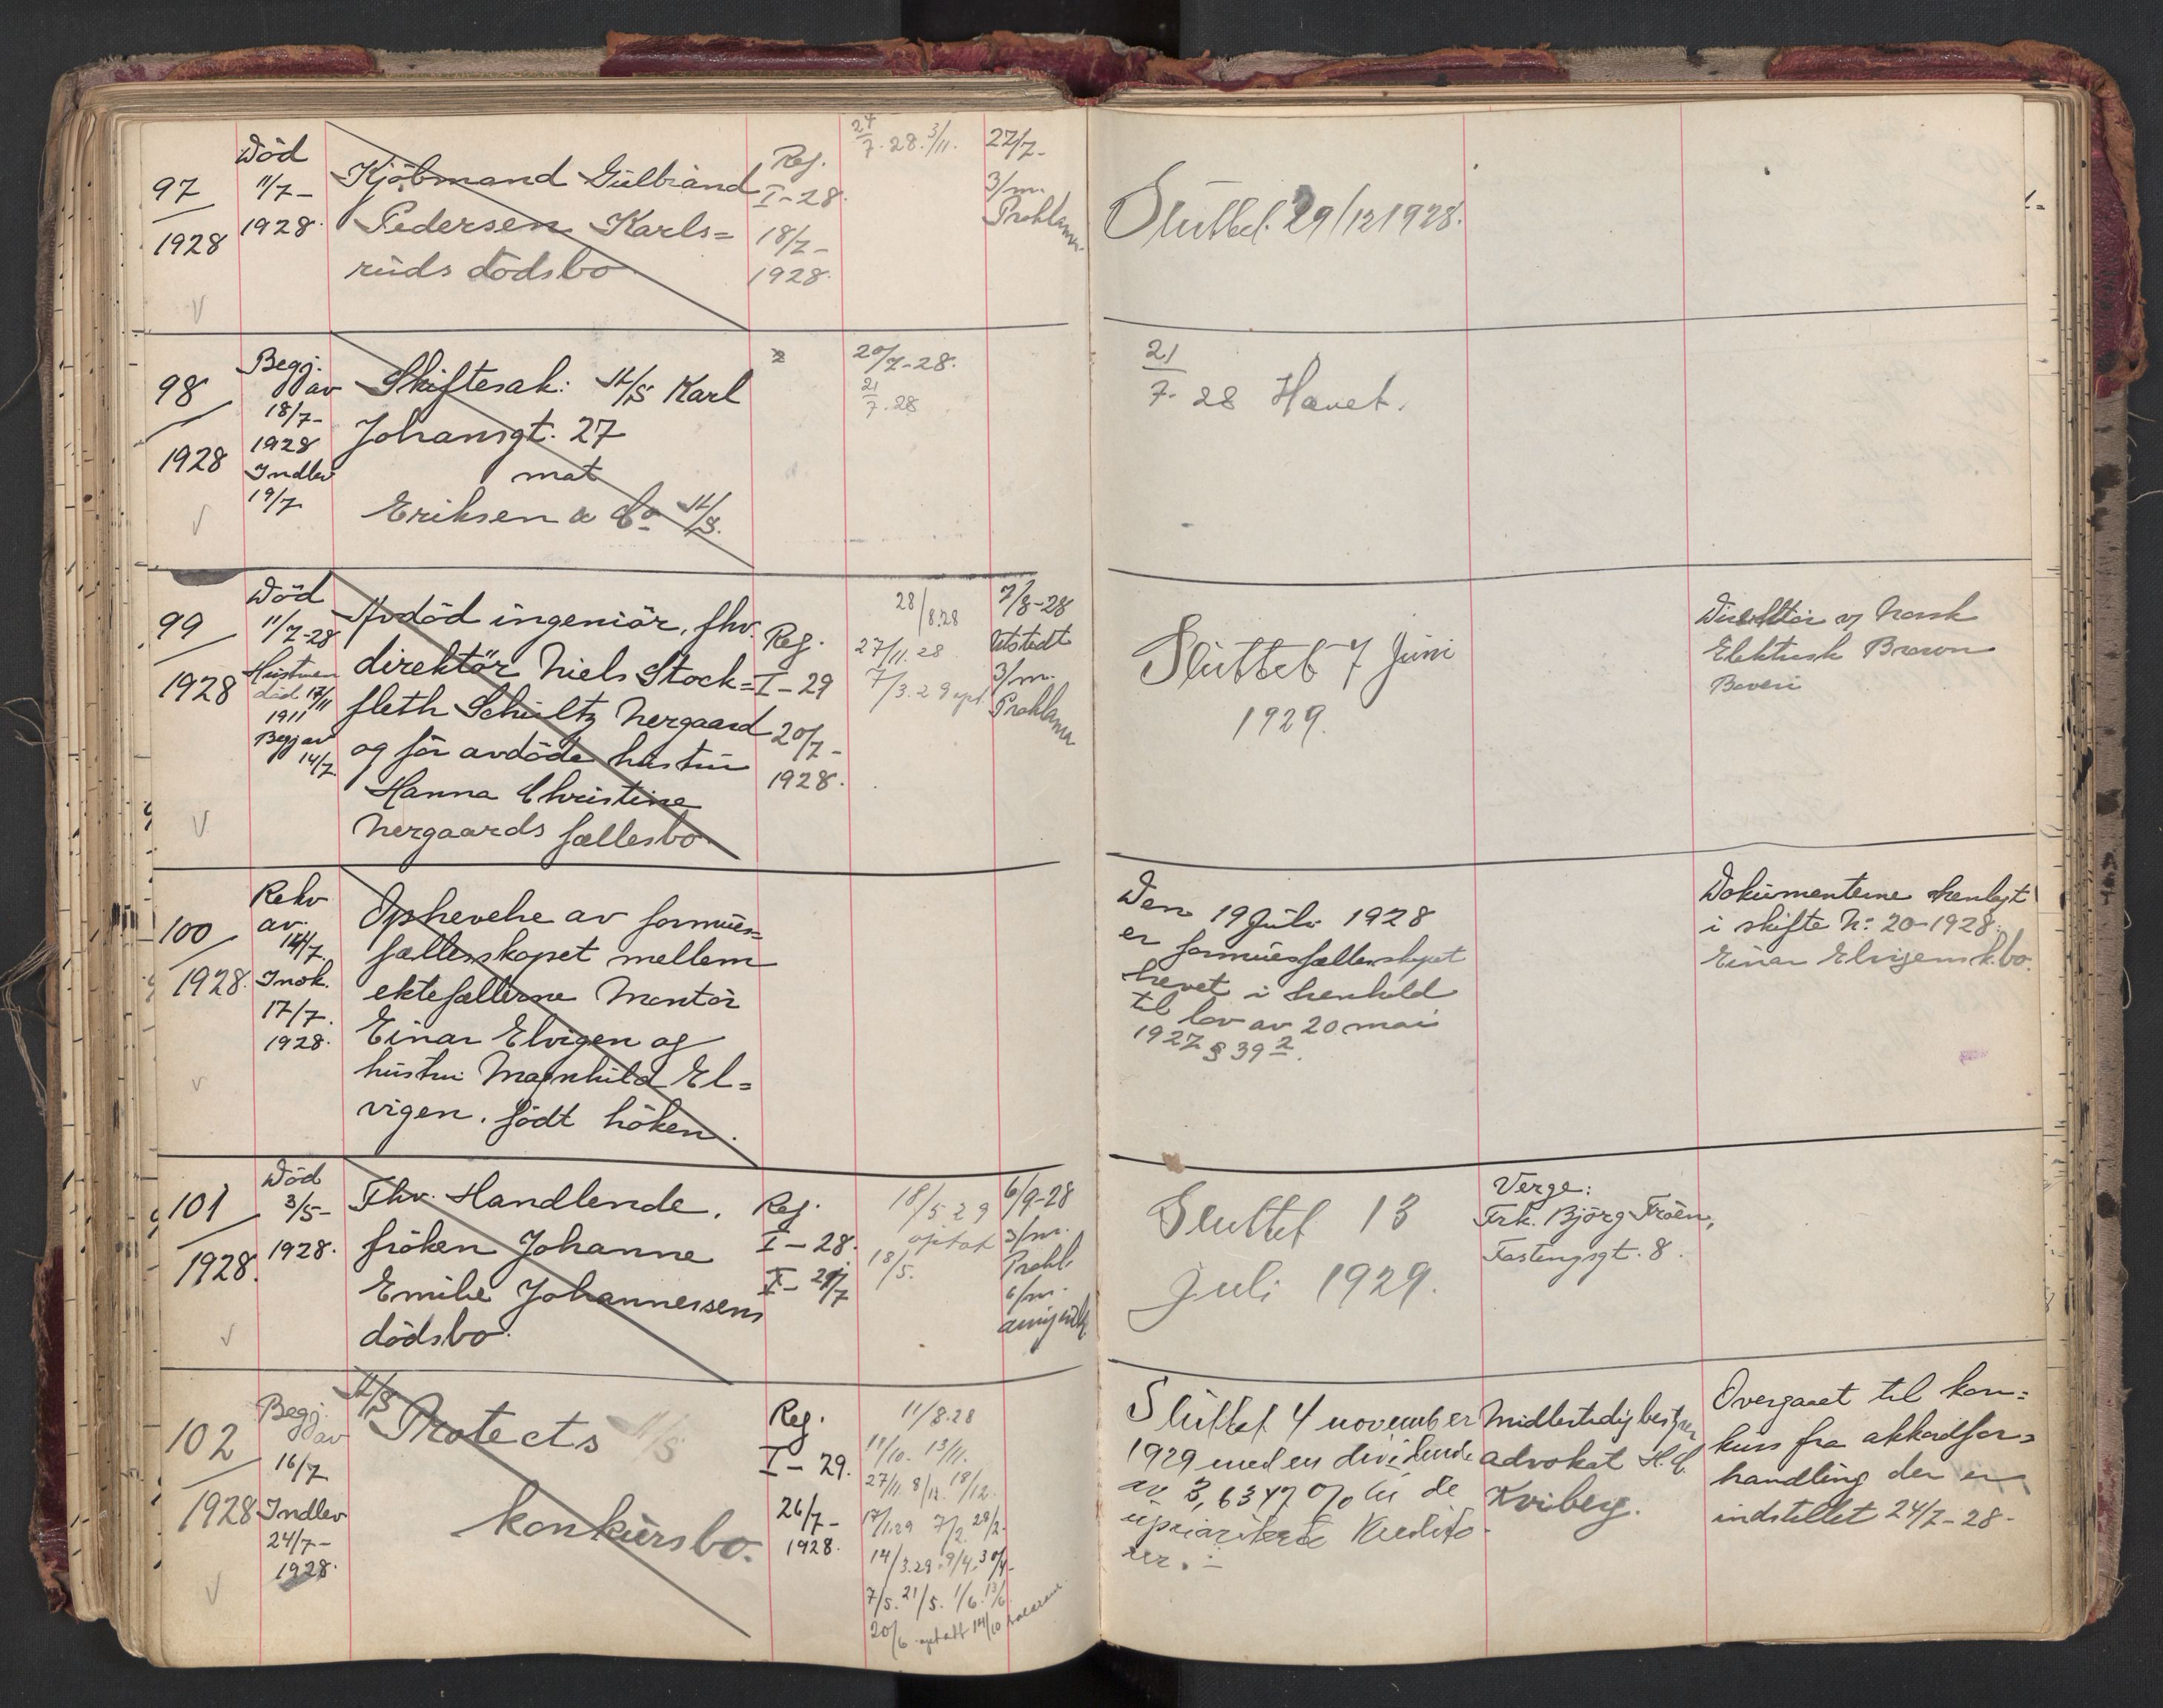 97
1928
Död
11/7-
1928.
Kjöbmand Gulbrand
Pedersen Karls=
ruds dödsbo
Reg.
I-28.
18/7-
1928.
27/7.28. 3/11.
27/7-
3/m.
Proklama
Sluttet. 29/12 1928.
98
1928
Begj.
av
18/7-
1928
Indlev
19/7
Skiftesak: A/S Karl
Johansgt. 27
mot
Eriksen & Co A/S.
20/7-28.
21/7.28
21/7. 28 Hævet.
99
1928
Död
11/7-28
Hustruen
död 17/11
1911
Begj av
14/7.
Avdöd ingeniör, fhv.
direktör Niels Stock=
fleth Schultz Nergaard
og för avdöde hustru
Hanna Christine
Nergaards fællesbo.
Reg.
I-29
20/7-
1928.
28/8.28
27/11.28
7/3.29 opt.
7/8-28
Utstedt
3/m.
Proklama
Sluttet 7 Juni
1929.
Direktör v/ Norsk
Elektrisk Brown
Boveri
100
1928.
Rekv
av.
14/7.
Innk.
17/7.
1928.
Ophevelse av formues=
fællesskapet mellem
ektefællerne Montör
Einar Elvigen og
hustru Magnhild El=
vigen, födt höken.
Den 19 Juli 1928
er formuesfællesskapet
hevet i henhold
til lov av 20 mai
1927 § 39 2.
Dokumenterne henlagt
i skifte N: 20-1928.
Einar Elvigens k.bo.
101
1928.
Död
3/5-
1928.
Fhv. Handlende,
fröken Johanne
Emilie Johannessens
dödsbo.
Reg.
I-28.
18/5 29
optat
18/5.
6/9-28
3/m.
Prokl.
6/m.
Sluttet 13
Juli 1929.
Verge:
Frk. Björg Fröen,
Fastingsgt. 8.
102
1928
Begj.
av
16/7
Indlev
24/7-
1928.
A/S Protects
konkursbo.
Reg.
I-29.
26/7-
1928.
11/8.28
11/10. 13/11.
27/11. 8/12. 18/12.
17/1.29 7/2. 28/2.
14/3.29. 9/4. 30/4-
7/5. 21/5. 1/6. 13/6
20/6 optatt 14/10
Sluttet 4 november
1929 med en dividende
av 3,6347 % til de
upriariterte Kredito-
rer.
Midlertidig bestyrer
advokat H.C.
Kviberg.
Overgaaet til kon=
kurs fra akkordfor=
handling der er
indstillet 24/7-28-